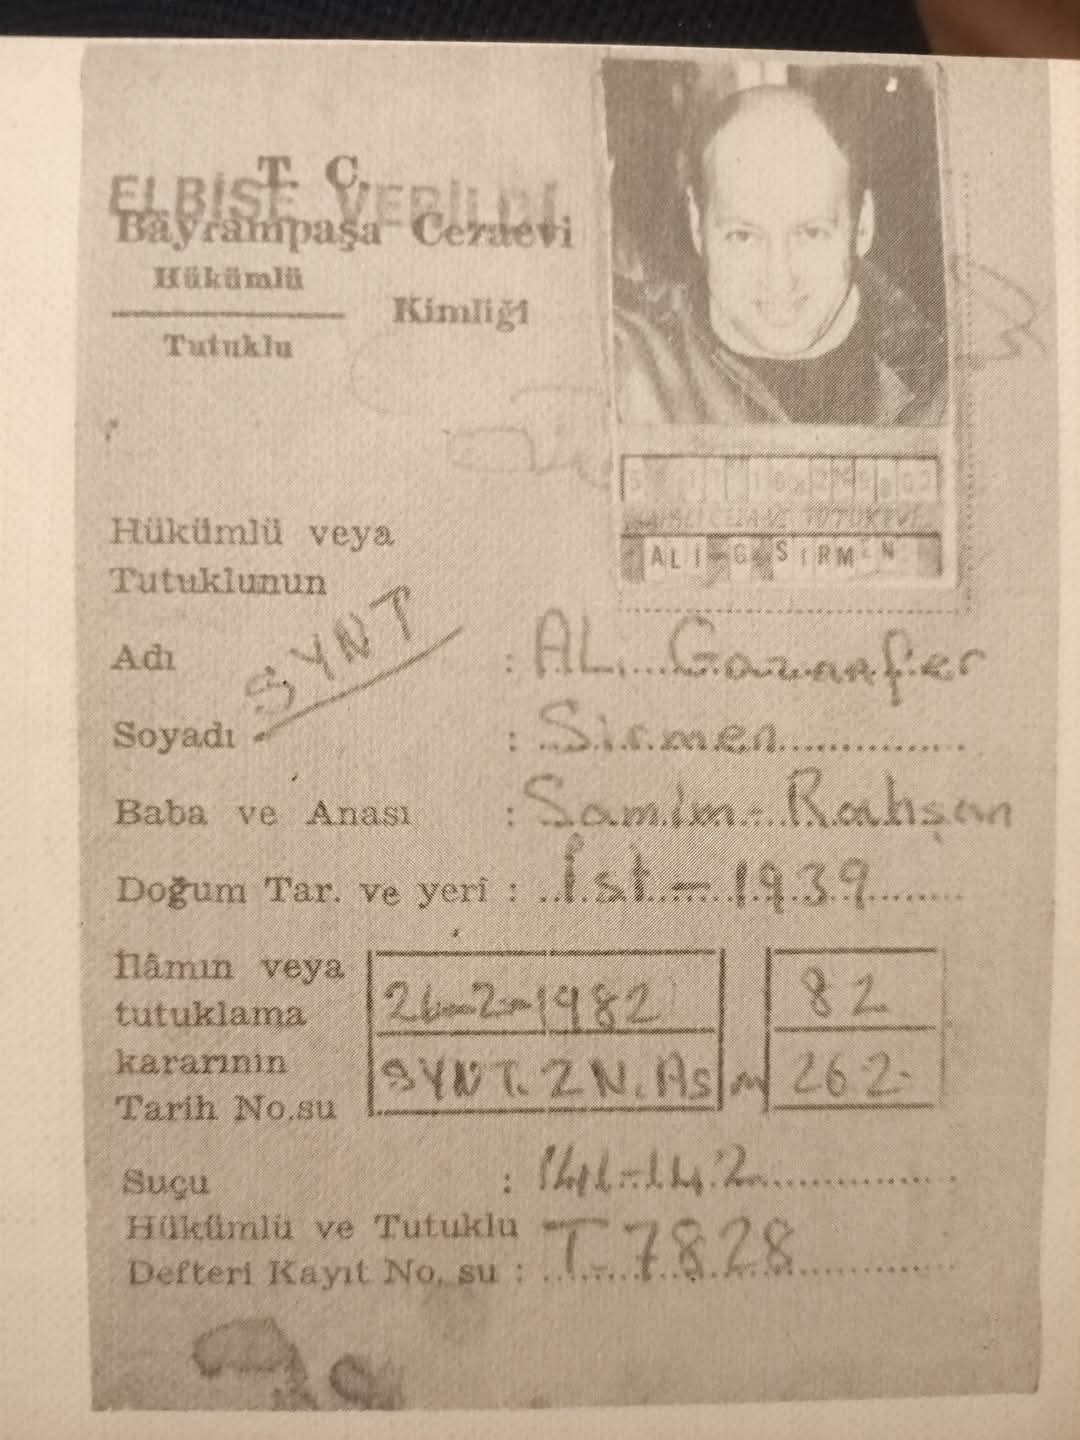 T. C.
ELBİSE VERİLDİ
Bayrampaşa Cezaevi
Hükümlü
Tutuklu
Kimliği
TUTUKEVİ
ALİ G SİRMEN
Hükümlü veya
Tutuklunun
SYNT
Adı : ALİ Gazanfer
Soyadı : Sirmen
Baba ve Anası : Samim - Rahşan
Doğum Tar. ve yeri : İst - 1939
İlâmın veya
tutuklama
kararının
Tarih No.su
26-2-1982
82
SYNT. 2 N. As m
26.2.
Suçu : 141-142
Hükümlü ve Tutuklu
Defteri Kayıt No. su : T. 7828